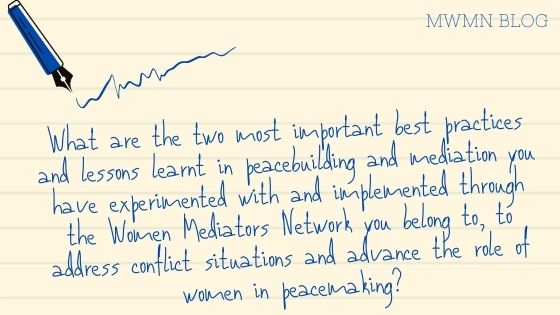 MWMN BLOG
What are the two most important best practices
and lessons learnt in peacebuilding and mediation you
have experimented with and implemented through
the Women Mediators Network you belong to, to
address conflict situations and advance the role of
women in peacemaking?